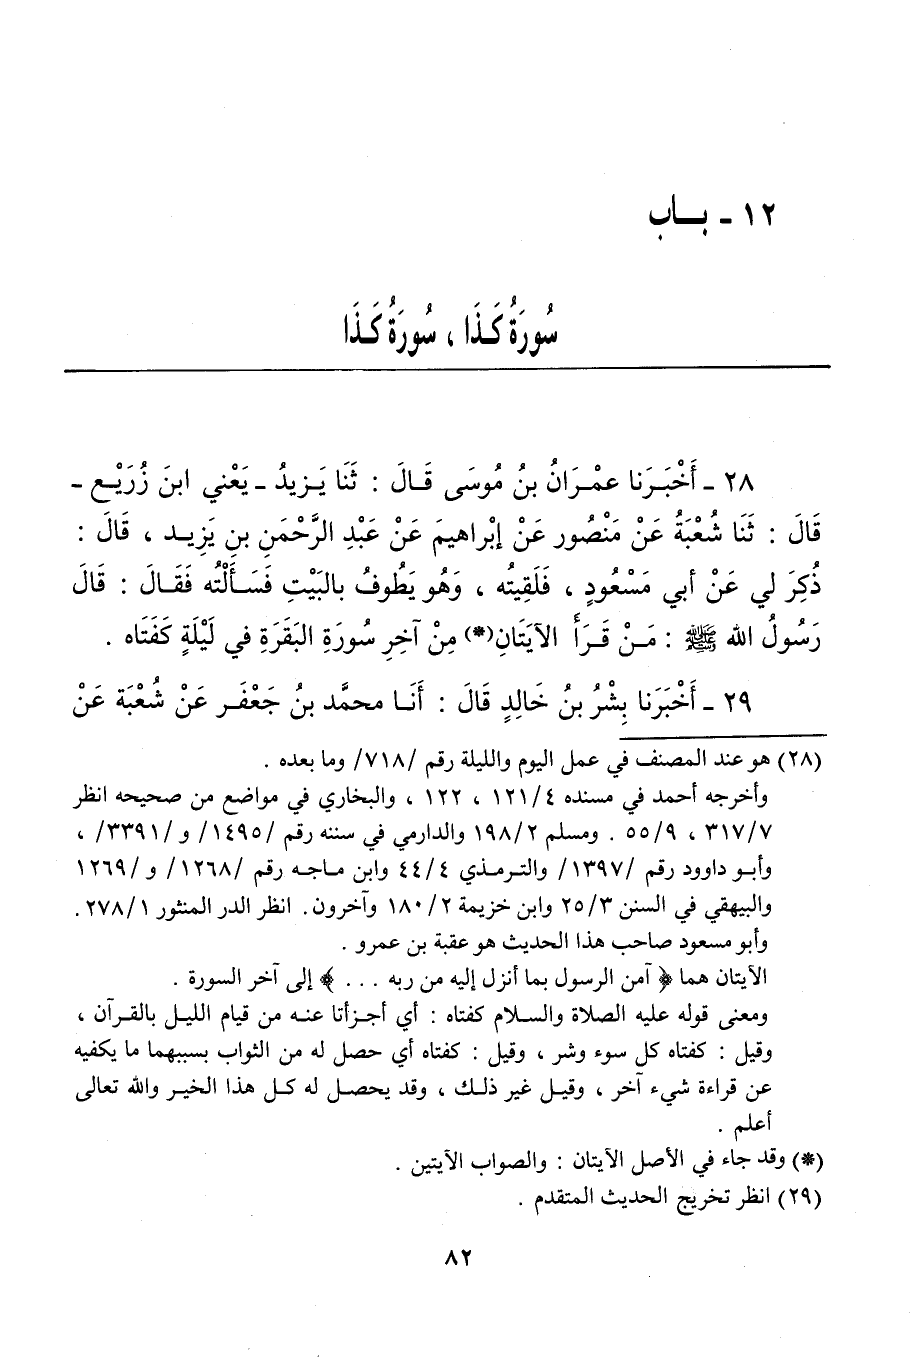 ١٢ - بــاب
سُورَةُ كَذَا ، سُورَةُ كَذَا
٢٨ - أَخْبَرَنا عمْرَانُ بنُ مُوسَى قَـالَ : ثَنَا يَـزيدُ - يَعْني ابنَ زُرَيْـع -
قَالَ : ثَنا شُعْبَةُ عَنْ مَنْصُور عَنْ إبْراهيمَ عَنْ عَبْدِ الرَّحْمَنِ بنِ يَزِيـد ، قَالَ :
ذُكِرَ لي عَنْ أبي مَسْعُودٍ ، فَلَقِيتُه ، وَهُو يَطُوفُ بالبَيْتِ فَسَـأَلْتُه فَقَـالَ : قَالَ
رَسُولُ الله ﷺ : مَـنْ قَـرَأَ الآيَتَانِ(*) مِنْ آخِرِ سُورَةِ البَقَرَةِ في لَيْلَةٍ كَفَتَاه .
٢٩ - أَخْبَرَنا بِشْرُ بنُ خَالِدٍ قَالَ : أَنَـا محمَّد بنُ جَعْفَـر عَنْ شُعْبَة عَنْ
(٢٨) هو عند المصنف في عمل اليوم والليلة رقم /٧١٨/ وما بعده .
وأخرجه أحمد في مسنده ١٢١/٤ ، ١٢٢ ، والبخاري في مواضع من صحيحه انظر
٣١٧/٧ ، ٥٥/٩ . ومسلم ١٩٨/٢ والدارمي في سننه رقم /١٤٩٥/ و /٣٣٩١/ ،
وأبـو داوود رقم /١٣٩٧/ والتـرمـذي ٤٤/٤ وابن مـاجـه رقم /١٢٦٨/ و /١٢٦٩
والبيهقي في السنن ٢٥/٣ وابن خزيمة ١٨٠/٢ وآخرون. انظر الدر المنثور ٢٧٨/١.
وأبو مسعود صاحب هذا الحديث هو عقبة بن عمرو .
الآيتان هما ﴿ آمن الرسول بما أنزل إليه من ربه . . . ﴾ إلى آخر السورة .
ومعنى قوله عليه الصلاة والسلام كفتاه : أي أجـزأتا عنـه من قيام الليـل بالقـرآن ،
وقيل : كفتاه كل سوء وشر ، وقيل : كفتاه أي حصل له من الثواب بسببهما ما يكفيه
عن قراءة شيء آخر ، وقيـل غير ذلـك ، وقد يحصـل له كـل هذا الخيـر والله تعالى
أعلم .
(*) وقد جاء في الأصل الآيتان : والصواب الآيتين .
(٢٩) انظر تخريج الحديث المتقدم .
٨٢